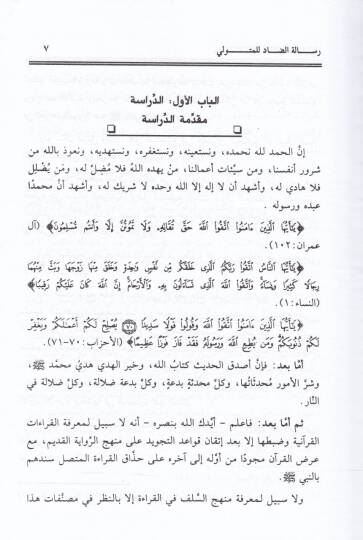 رسالة الضاد للمتولي
٧
الباب الأول: الدِّراسة
مقدِّمة الدِّراسة
إنَّ الحمد لله نحمده، ونستعينه، ونستغفره، ونستهديه، ونعوذ بالله من
شرور أنفسنا، ومن سيِّئات أعمالنا، منْ يهده اللهُ فلا مُضِلَّ له، ومَن يُضْلِل
فلا هادي له، وأشهد أن لا إله إلا الله وحده لا شريك له، وأشهد أنَّ محمدًا
عبده ورسوله .
﴿يَٰٓأَيُّهَا ٱلَّذِينَ ءَامَنُوا۟ ٱتَّقُوا۟ ٱللَّهَ حَقَّ تُقَاتِهِۦ وَلَا تَمُوتُنَّ إِلَّا وَأَنتُم مُّسْلِمُونَ﴾ (آل
عمران:١٠٢).
﴿يَٰٓأَيُّهَا ٱلنَّاسُ ٱتَّقُوا۟ رَبَّكُمُ ٱلَّذِى خَلَقَكُم مِّن نَّفْسٍ وَٰحِدَةٍ وَخَلَقَ مِنْهَا زَوْجَهَا وَبَثَّ مِنْهُمَا
رِجَالًا كَثِيرًا وَنِسَآءً وَٱتَّقُوا۟ ٱللَّهَ ٱلَّذِى تَسَآءَلُونَ بِهِۦ وَٱلْأَرْحَامَ إِنَّ ٱللَّهَ كَانَ عَلَيْكُمْ رَقِيبًا﴾
(النساء:١).
﴿يَٰٓأَيُّهَا ٱلَّذِينَ ءَامَنُوا۟ ٱتَّقُوا۟ ٱللَّهَ وَقُولُوا۟ قَوْلًا سَدِيدًا ۝٧٠ يُصْلِحْ لَكُمْ أَعْمَٰلَكُمْ وَيَغْفِرْ
لَكُمْ ذُنُوبَكُمْ وَمَن يُطِعِ ٱللَّهَ وَرَسُولَهُۥ فَقَدْ فَازَ فَوْزًا عَظِيمًا﴾ (الأحزاب:٧٠-٧١).
أمَّا بعد: فإنَّ أصدق الحديث كتابُ الله، وخير الهدي هديُ محمَّد ﷺ،
وشرَّ الأمور مُحدَثاتُها، وكلَّ محدثةٍ بدعة، وكلَّ بدعة ضلالة، وكلَّ ضلالة في
النَّار.
ثم أمَّا بعد: فاعلم – أيَّدك الله بنصره – أنه لا سبيل لمعرفة القراءات
القرآنية وضبطها إلا بعد إتقان قواعد التجويد على منهج الرِّواية القديم، مع
عرض القرآن مجودًا من أوَّله إلى آخره على حذَّاق القراءة المتصل سندهم
بالنبي ﷺ.
ولا سبيل لمعرفة منهج السَّلف في القراءة إلا بالنظر في مصنَّفات هذا